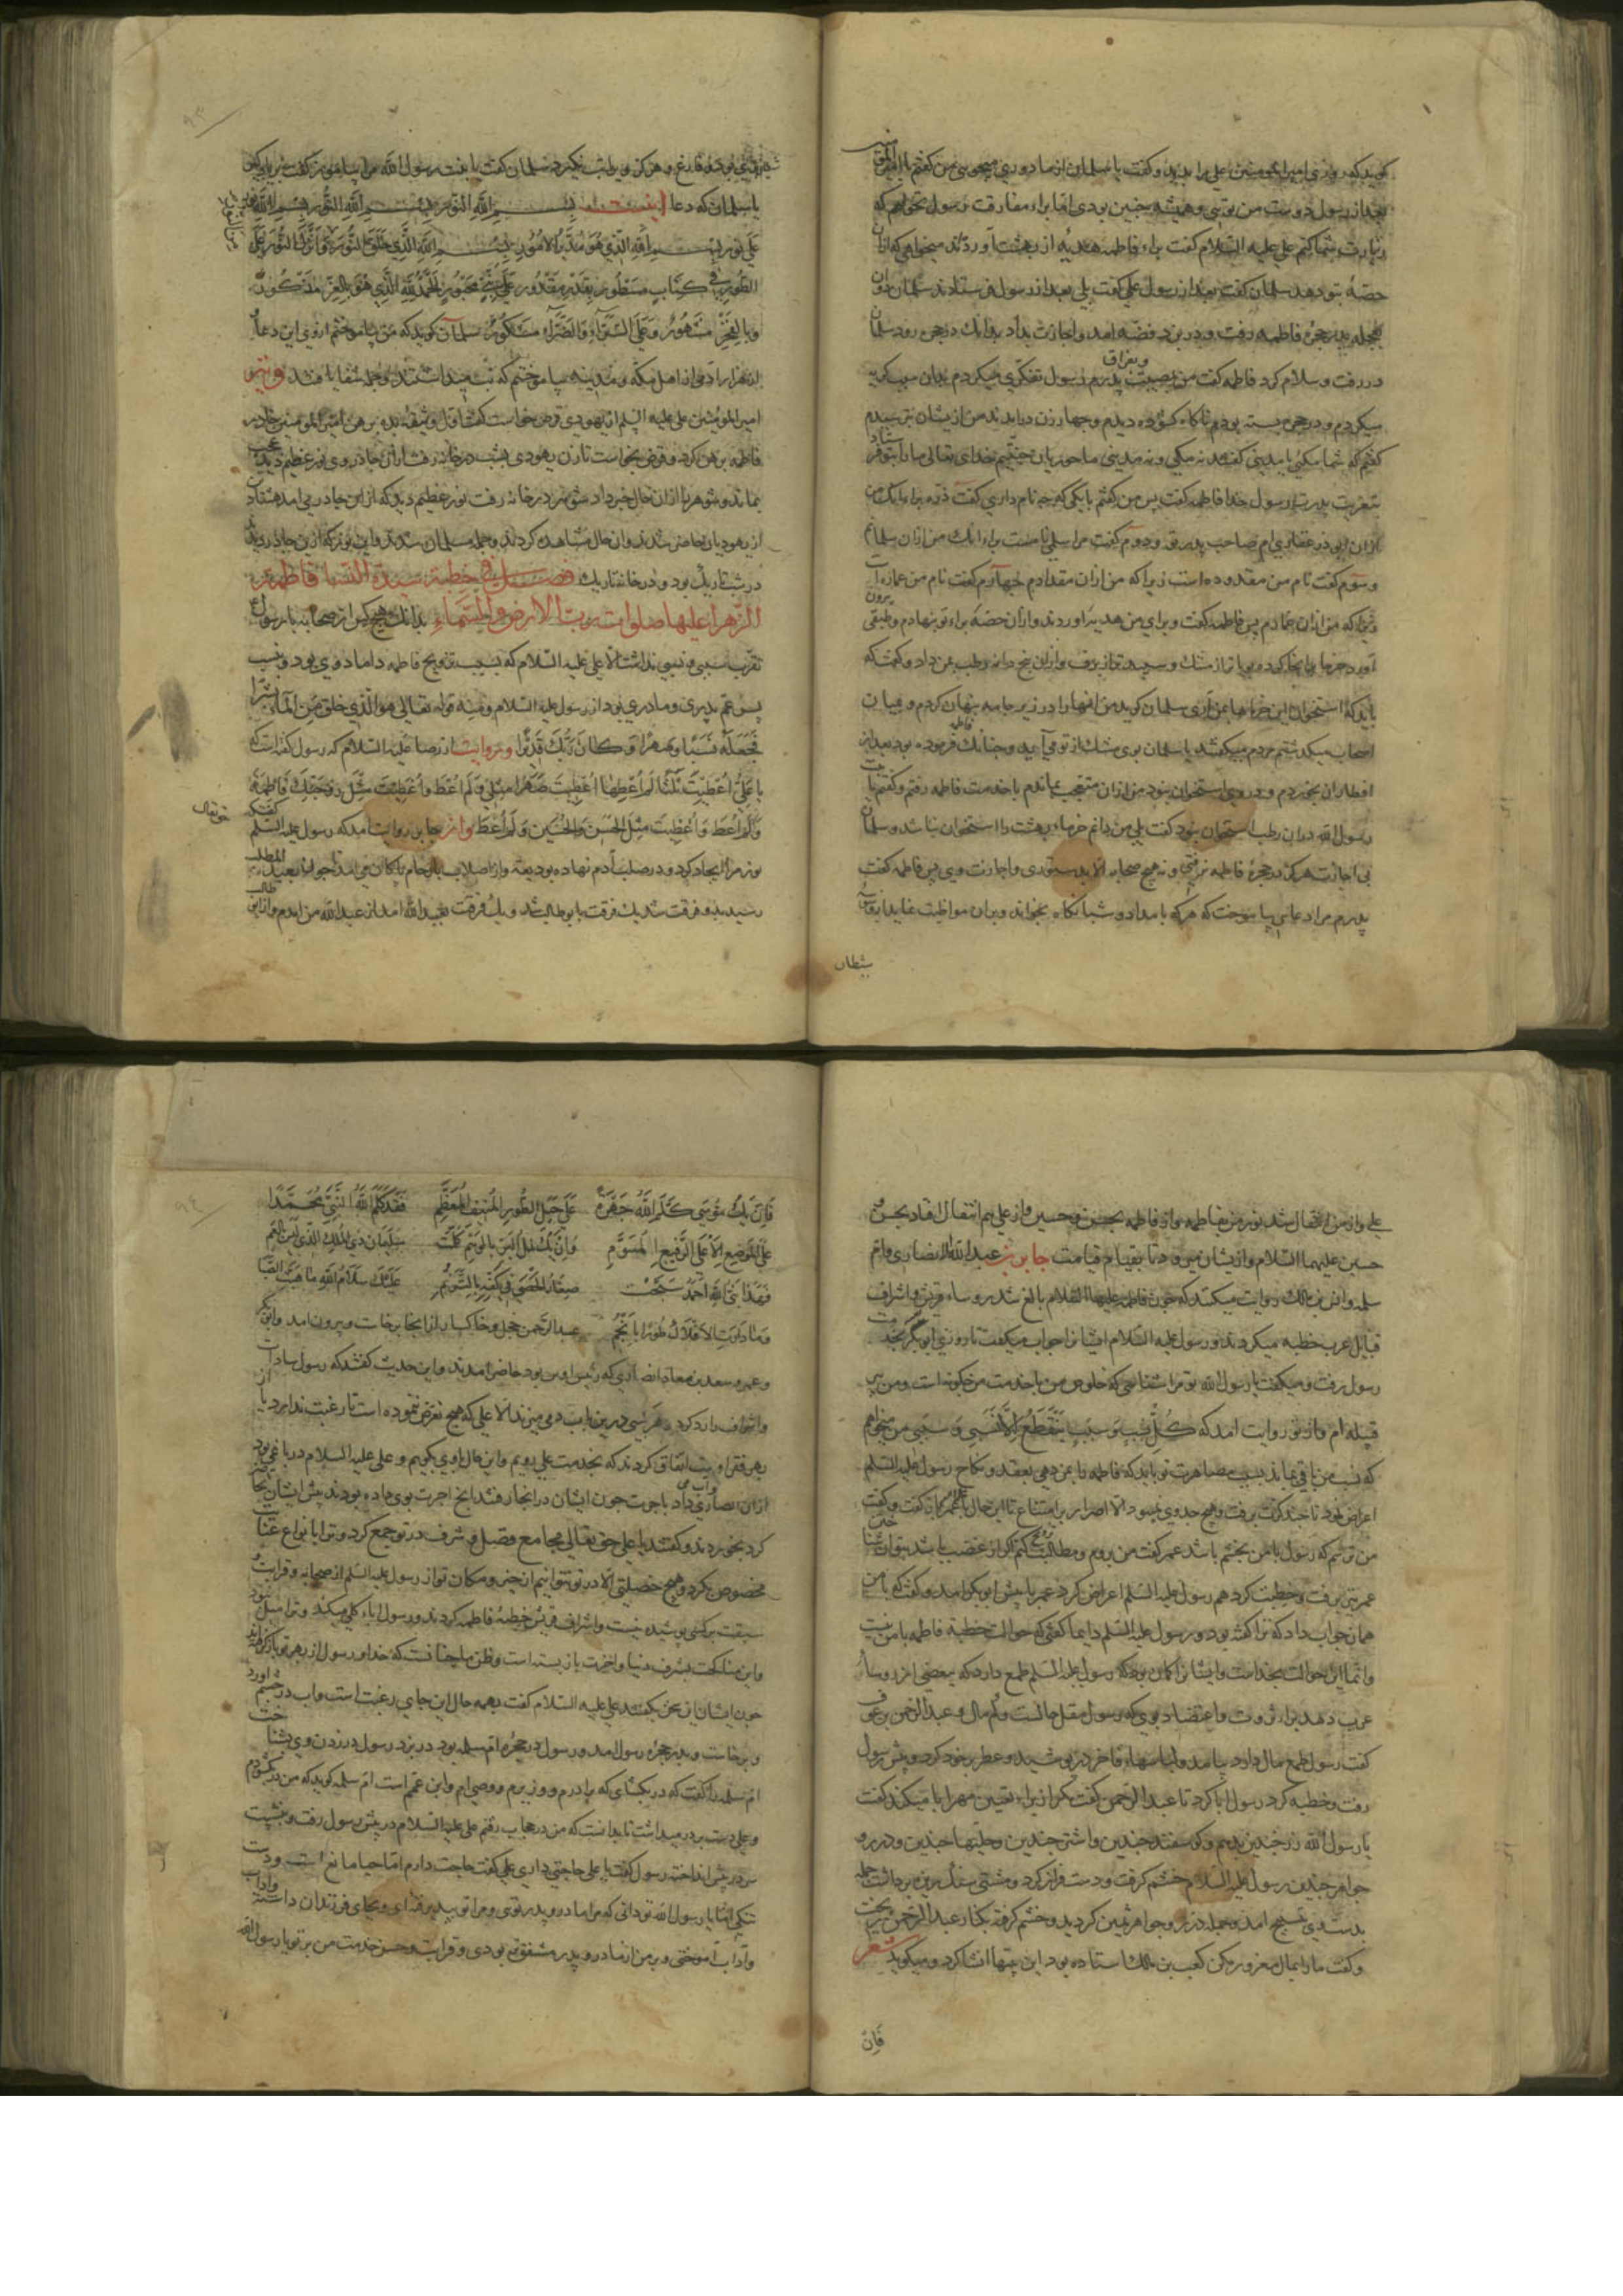 کوید که روزی امیرالمومنین علی را بدید و کفت یا سلمان از ما دوری میجویی من کفتم یا امیرالمومنین
بعد از رسول دوست من تویی و همیشه چنین بودی اما براء مفارقت رسول نخواهم که
زیارت شما کنم علی علیه السلام کفت براء فاطمه هدیهٔ از بهشت آورده‌اند میخواهی که از آن
حصهٔ بتو دهد سلمان کفت بعد از رسول علی کفت بلی بعد از رسول فرستادند سلمان دوان
بعجله بدر حجرهٔ فاطمه رفت و در بزد فضه امد و اجازت بداد بدانک در حجره رود سلمان
در رفت و سلام کرد فاطمه کفت من بمصیبت و بفراق پدرم رسول تفکری میکردم بدان سبب کریه
میکردم و در حجره بسته بودم ناکاه کشوده دیدم و چهار زن درامدند من از یشان بترسیدم
کفتم که شما مکیّٔ یا مدینی کفتند نه مکی و نه مدینی ما حوریان جنتیم خدای تعالی ما را بتو فرستاد
بتعزیت پدرت رسول خدا فاطمه کفت پس من کفتم با یکی که چه نام داری کفت ذره براء انک من
از ان ابی ذر غفاری ام صاحب پدرت و دوم کفت مرا سلمی نامست براء انک من از ان سلمانم
و سوم کفت نام من مقدوده است زیرا که من از ان مقدادم چهارم کفت نام من عماره است
زیرا که من از ان عمارم پس فاطمه کفت و برای من هدیه آوردند و از ان حصه براء تو بنهادم و طبقی بیرون
آورد خرما بدانجا کرده بویاتر از مشک و سپیدتر از برف و از ان پنج دانه رطب بمن داد و کفت که
باید که استخوان این خرماها بمن آری سلمان کوید من انها را در زیر جامه پنهان کردم و بمیان
اصحاب میکذشتم مردم میکفتند یا سلمان بوی مشک از تو می آید و چنانک فاطمه فرموده بود بعد از
افطار ان بخوردم و در وی استخوان نبود من از ان متعجب بماندم با خدمت فاطمه رفتم و کفتم یا بنت
رسول الله در ان رطب استخوان نبود کفت بلی من دانم خرماء بهشت را استخوان نباشد و سلمان
بی اجازت هرکز در حجرهٔ فاطمه نرفتی و نه هیچ صحابه الا بدستوری و اجازت وی پس فاطمه کفت
پدرم مرا دعایی بیاموخت که هرکه بامداد و شبانکاه بخواند و بران مواظبت نماید از وسوسهٔ
شیطان
شیطان ایمن بود و فارغ و هرکز ویرا تب نکیرد سلمان کفت یا بنت رسول الله مرا بیاموز کفت
یا سلمان که دعا اینست بسم الله النور بسم الله النور بسم الله نور
علی نور بسم الله الذی هو مدبر الامور بسم الله الذی خلق النور و انزل النور علی
الطور فی کتاب مسطور بقدر مقدور علی نبی محبور الحمد لله الذی هو بالعز مذکور
و بالفخر مشهور و علی السراء و الضراء مشکور سلمان کوید که من بیاموختم از وی این دعا
هزار ادمی از اهل مکه و مدینه بیاموختم که تب میداشتند و جمله شفا یافتند
امیرالمومنین علی علیه السلم از یهودی قرض خواست کفت اول وثیقه بده برهن امیرالمومنین چادر
فاطمه برهن کرد و قرض بخواست تا زن یهودی بشب در خانه رفت از ان چادر وی نور عظیم دید عجب
بماند و شوهر را از ان حال خبر داد شوهر در خانه رفت نور عظیم دید که از ان چادر می امد هشتاد تن
از یهودیان حاضر شدند و ان حال مشاهده کردند و جمله مسلمان شدند و این نور که از ان چادر بدید
در شب تاریک بود و در خانه تاریک فصل فی خطبة سیدة النساء فاطمة
الزهرا علیها صلوات رب الارض و السماء بدانک هیچ کس از صحابه با رسول
تقرب سببی و نسبی نداشت الا علی علیه السلام که بسبب تزویج فاطمه داماد وی بود و نسب
پسر عم پدری و مادری بود از رسول علیه السلام و فیه قوله تعالی هو الذی خلق من الماء بشرا
فجعله نسبا و صهرا و کان ربک قدیرا و روایت از رضا علیه السلام که رسول کفت
یا علی اعطیت ثلثا لم اعطها اعطیت صهرا مثلی و لم اعط و اعطیت مثل زوجتک فاطمة
و لم اعط و اعطیت مثل الحسن و الحسین و لم اعط و از جابر روایت امد که رسول علیه السلم کفت که
حق تعالی
نور مرا ایجاد کرد و در صلب آدم نهاده بودیعت و از اصلاب بارحام تا کان می امد تا چون بعبد المطلب
رسید بدو فرقت شد یک فرقت بابو طالب شد و یک فرقت بعبد الله امد از عبد الله من امدم و از ابی طالب
علی و از من انتقال شد نور من بفاطمه و از فاطمه بحسن و حسین و از علی هم انتقال افتاد بحسن و
حسین علیهما السلام و از یشان نبرود تا بقیام قیامت جابر بن عبد الله الانصاری و ام
سلمه و انس بن مالک روایت میکنند که چون فاطمه علیها السلام بالغ شد رؤساء قریش و اشراف
قبایل عرب خطبه میکردند و رسول علیه السلام ایشانرا جواب میکفت تا روزی ابوبکر بخدمت
رسول رفت و میکفت یا رسول الله تو مرا شناسی که خلوص من با خدمت من چکونه است و من پیر
قبیله ام و از تو روایت امد که کل نسب و سبب ینقطع الا نسبی و سببی من میخواهم
که نسب من باقی بماند بسبب مصاهرت تو باید که فاطمه را بمن دهی بعقد و نکاح رسول علیه السلم
اعراض نمود تا چند کرت برفت و هیچ جدوی نبود الا اصرار بر امتناع تا این حال با عمر باز کفت و کفت
من ترسم که رسول با من بخشم باشد عمر کفت من بروم و مطالبت کنم اکر از غضب باشد بتوان شناختن
عمر نیز برفت و خطبت کرد هم رسول علیه السلم اعراض کرد عمر با پیش ابوبکر امد و کفت که با من
همان جواب داد که ترا کفته بود و رسول علیه السلم دایما کفتی که حوالت خطبهٔ فاطمه با من نیست
و انما این حوالت بخداست و ایشانرا کمان بود که رسول علیه السلم طمع دارد که ببعضی از رؤساء
عرب دهد براء ثروت و اعتضاد بوی که رسول مقل حالست و کم مال و عبد الرحمن بن عوف
کفت رسول طمع مال دارد بیامد و لباسهاء فاخر در پوشید و عطر برخود کرد و پیش رسول
رفت و خطبه کرد رسول ابا کرد تا عبد الرحمن کفت مکر از براء تعیین مهر ابا میکند کفت
یا رسول الله زر چندین بدهم و کوسفند چندین و اشتر چندین و حلیتها چندین و در و
جواهر چندین رسول علیه السلام خشم کرفت و دست فراز کرد و مشتی سنک ریزه برداشت جمله
بدست وی تسبیح امد و جمله در و جواهر ثمین کردید و خشم کرفته بکنار عبد الرحمن بریخت
و کفت ما را بمال مغرور مکن کعب بن مالک استاده بود این بیتها انشا کرد و میکوید شعر
فان
فان یک موسی کلم الله جهرة علی جبل الطور المنیف المعظم فقد کلم الله النبی محمدا
علی الموضع الاعلی الرفیع المسوم و ان یک نمل البر بالوهم کلمت سلیمان ذی الملک الذی لیس بالعمی
فهذا نبی الله احمد سبحت صغار الحصی فی کفه بالترنم علیک سلام الله ما هبت الصبا
و ما دارت الافلاک طورا بانجم عبد الرحمن خجل و خاکسار از انجا برخاست و بیرون امد و ابوبکر
و عمر و سعد بن معاذ انصاری که رئیس اوس بود حاضر امدند و این حدیث کفتند که رسول سادات
و اشراف را رد کرد و هر کسی درین باب دمی میزند الا علی که هیچ تعرض ننموده است تا رغبت ندارد یا از
بهر فقر اوست اتفاق کردند که بخدمت علی رویم و این حال باوی بکوییم و علی علیه السلام در باغی بود
از ان انصاری و آب می داد باجرت چون ایشان در انجا رفتند انچ اجرت بوی داده بودند پیش ایشان نثار
کرد بخوردند و کفتند یا علی حق تعالی مجامع فضل و شرف در تو جمع کرد و ترا بانواع عنایت
مخصوص بکرد و هیچ خصلتی الا در تو نتوانیم ان چیز و مکان تو از رسول علیه السلم از صحابه و قرابت و
سبقت برکسی پوشیده نیست و اشراف قریش خطبهٔ فاطمه کردند و رسول اباء کلی میکند و ترا میل نبود
و این مناکحت بشرف دنیا و اخرت باز بسته است و ظن ما چنانست که خدا و رسول از بهر تو باز کرفته اند
چون ایشان این سخن بکفتند علی علیه السلام کفت بهمه حال این جای رغبت است و اب در چشم آورد
و برخاست و بدر حجرهٔ رسول امد و رسول در حجرهٔ ام سلمه بود در بزد رسول در زدن وی بشناخت
ام سلمه را کفت که در بکشای که برادرم و وزیرم و وصی ام و ابن عمم است ام سلمه کوید که من در بکشودم
و علی دست بر در میداشت تا بدانست که من در حجاب رفتم علی علیه السلام در پیش رسول رفت و بنشست
سر در پیش انداخته رسول کفت یا علی حاجتی داری علی کفت حاجت دارم اما حیا مانع است و دست
تنکی اما یا رسول الله تو دانی که مرا مادر و پدر تویی و مرا تو بپذیرفته‌ای و بجای فرزندان داشته و اداب
و آداب آموختی و بر من از مادر و پدر مشفق‌تر بودی و قرابت و حسن خدمت من بر تو یا رسول الله